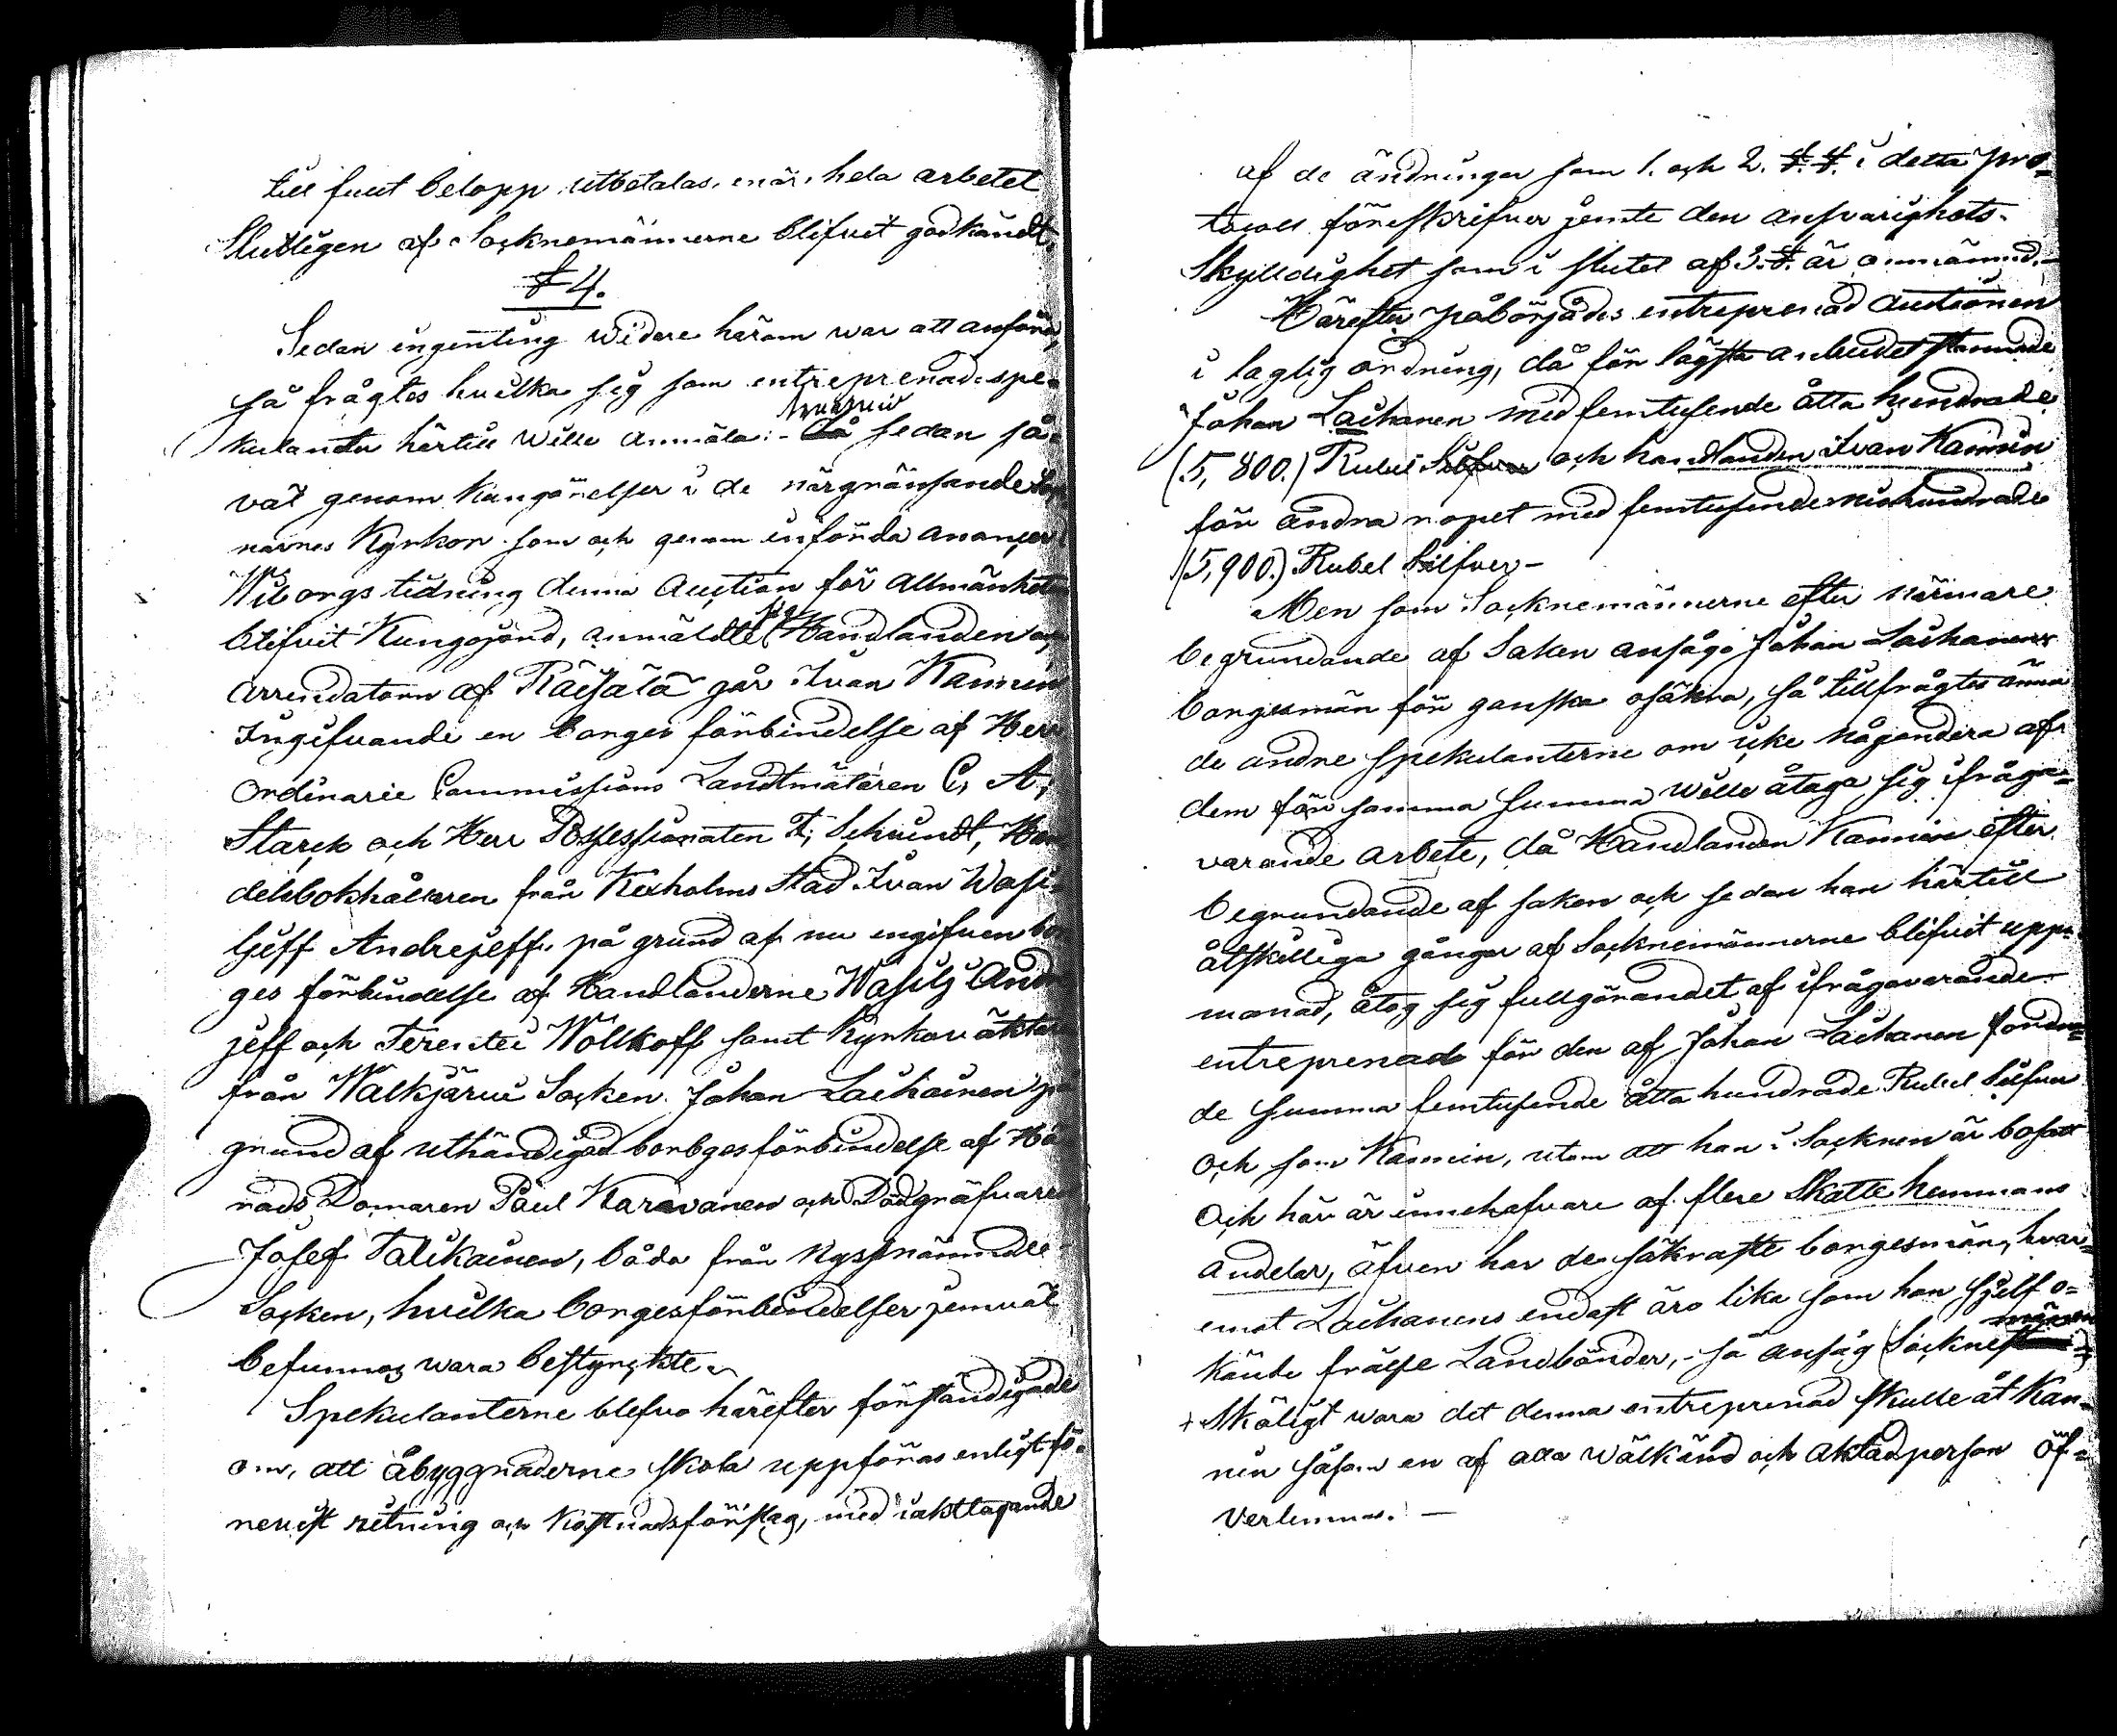 till fullt belopp utbetalas, när hela arbetet
Slutligen af Socknemännerne blifvit godkändt,
§ 4.
Sedan ingenting widare härom war att anföra,
så frågtes huilka sig som entreprenad spe-
kulanter härtill wille anmäla:- då sedan så-
väl genom Kungörelser i de närgränsande
narnes Kyrkor som och genom införda anoncer i
Wiborgs tidning denna Auction för Allmänheten
blifvit Kungojord, anmäldte sig Handlanden och
Arrendatorn af Räisälä går Ivan Kannin
Ingifvande en borges förbindelse af Herr
Ordinarie Commissions Landtmätaren C, A,
Starck och Herr Possessionaten T, Schvindt, Han
delsbokhållaren från Kexholms Stad Ivan Wasi-
ljeff Andrejeff, på grund af nu ingifven bor
ges förbindelse af Handlanderne Wasilj Andre
jeff och Terentei Wollkoff samt Kyrkoväktaren
från Walkjärvi Socken Johan Laihainen på
grund af uthändigad borbgesförbindelse af Hä
rads Domaren Paul Karavanen och Dödgräfvaren
Josef Talikainen, båda från nyssnämnde
Socken, hvilka borgesförbindelser jemväl
befunnos wara bestyrckte.
Spekulanterne blefvo härefter förständigade
om, att åbyggnaderne skola uppföras enligt fö-
nevist ritning och Kostnadsförslag, med iakttagande
af de ändringar som 1. och 2. §.§. i detta pro-
tocoll föreskrifver jemte den ansvarighets-
Skylldighet som i slutet af 3. §. är omnämnd.-
Härefter påbörjades entreprenad Auctionen
i laglig ordning, då för lägsta anbudet stannade
Johan Laihanen med femtusende åtta hundrade
(5,800.) Rubel Silfver och handlanden Ivan Kannin
för andra ropet med femtusende niohundrade
(5,900.) Rubel Silfver-
Men som Socknemännerne efter närmare
begrundande af Saken ansågo Johan Laihanens
borgesmän för ganska osäkra, så tillfrågtes ännu
de andre spekulanterne om icke någondera af
dem för samma Summa wille åtaga sig ifråga-
varande arbete, då Handlanden Kannin efter
begrundande af saken och sedan han härtill
åtskilliga gånger af Socknemännerne blifvit upp-
manad, åtog sig fullgörandet af ifrågavarande
entreprenad för den af Johan Laihanen fordra-
de Summa femtusende åtta hundrade Rubel Silfver
och som Kannin, utom att han i Socknen är bosatt
och här är innehafvare af flere Skatte hemmans
andelar, äfven har de säkraste borgesmän, hvar-
emot Laihanens endast äro lika som han sjelf o-
kände frälse Landbönder, - så ansåg Sockne männen
+ Skäligt wara det denna entreprenad skulle åt Kan-
nin såsom en af alla wälkänd och aktad person öf-
verlemnas. -